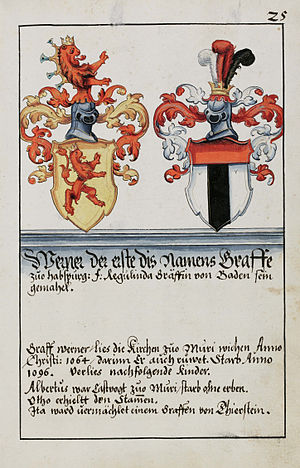 25
Werner der erste dis Namens Graffe
zuo habspurg: F. Regulinda Gräffin von Baden sein
gemahel.
Graff Werner lies die Kirchen zuo Muri wichen Anno
Christi: 1064. darum Er auch ruwet. Starb Anno
1096. Verlies nachfolgende kinder.
Albertus war Castvogt zuo Muri/ starb ohne erben.
Otho erhieltt den Stamen.
Ita ward vermächlet einem Graffen von Thierstein.